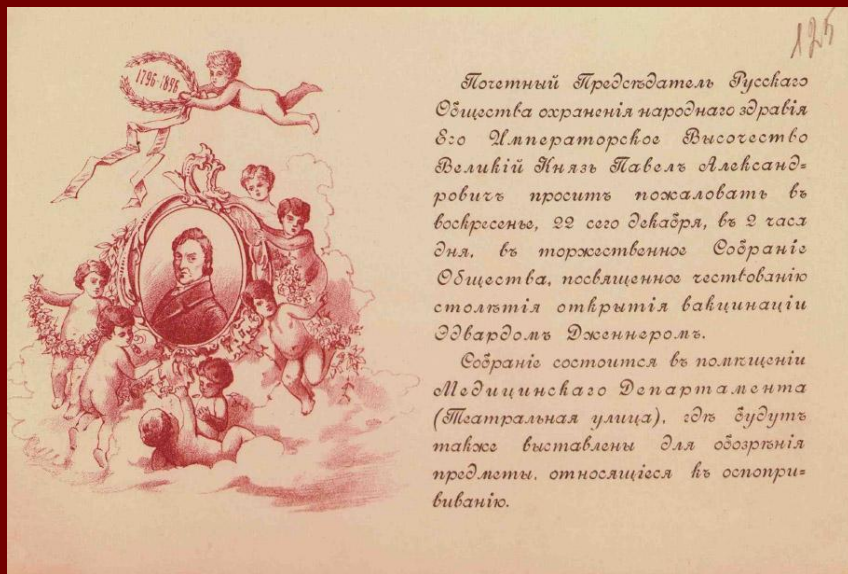 125
1796-1896
Почетный Предсѣдатель Русскаго
Общества охраненія народнаго здравія
Его Императорское Высочество
Великій Князь Павелъ Александ=
ровичъ проситъ пожаловать въ
воскресенье, 22 сего декабря, въ 2 часа
дня, въ торжественное Собраніе
Общества, посвященное чествованію
столѣтія открытія вакцинаціи
Эдвардомъ Дженнеромъ.
Собраніе состоится въ помѣщеніи
Медицинскаго Департамента
(Театральная улица), гдѣ будутъ
также выставлены для обозрѣнія
предметы, относящіеся къ оспопри=
виванію.